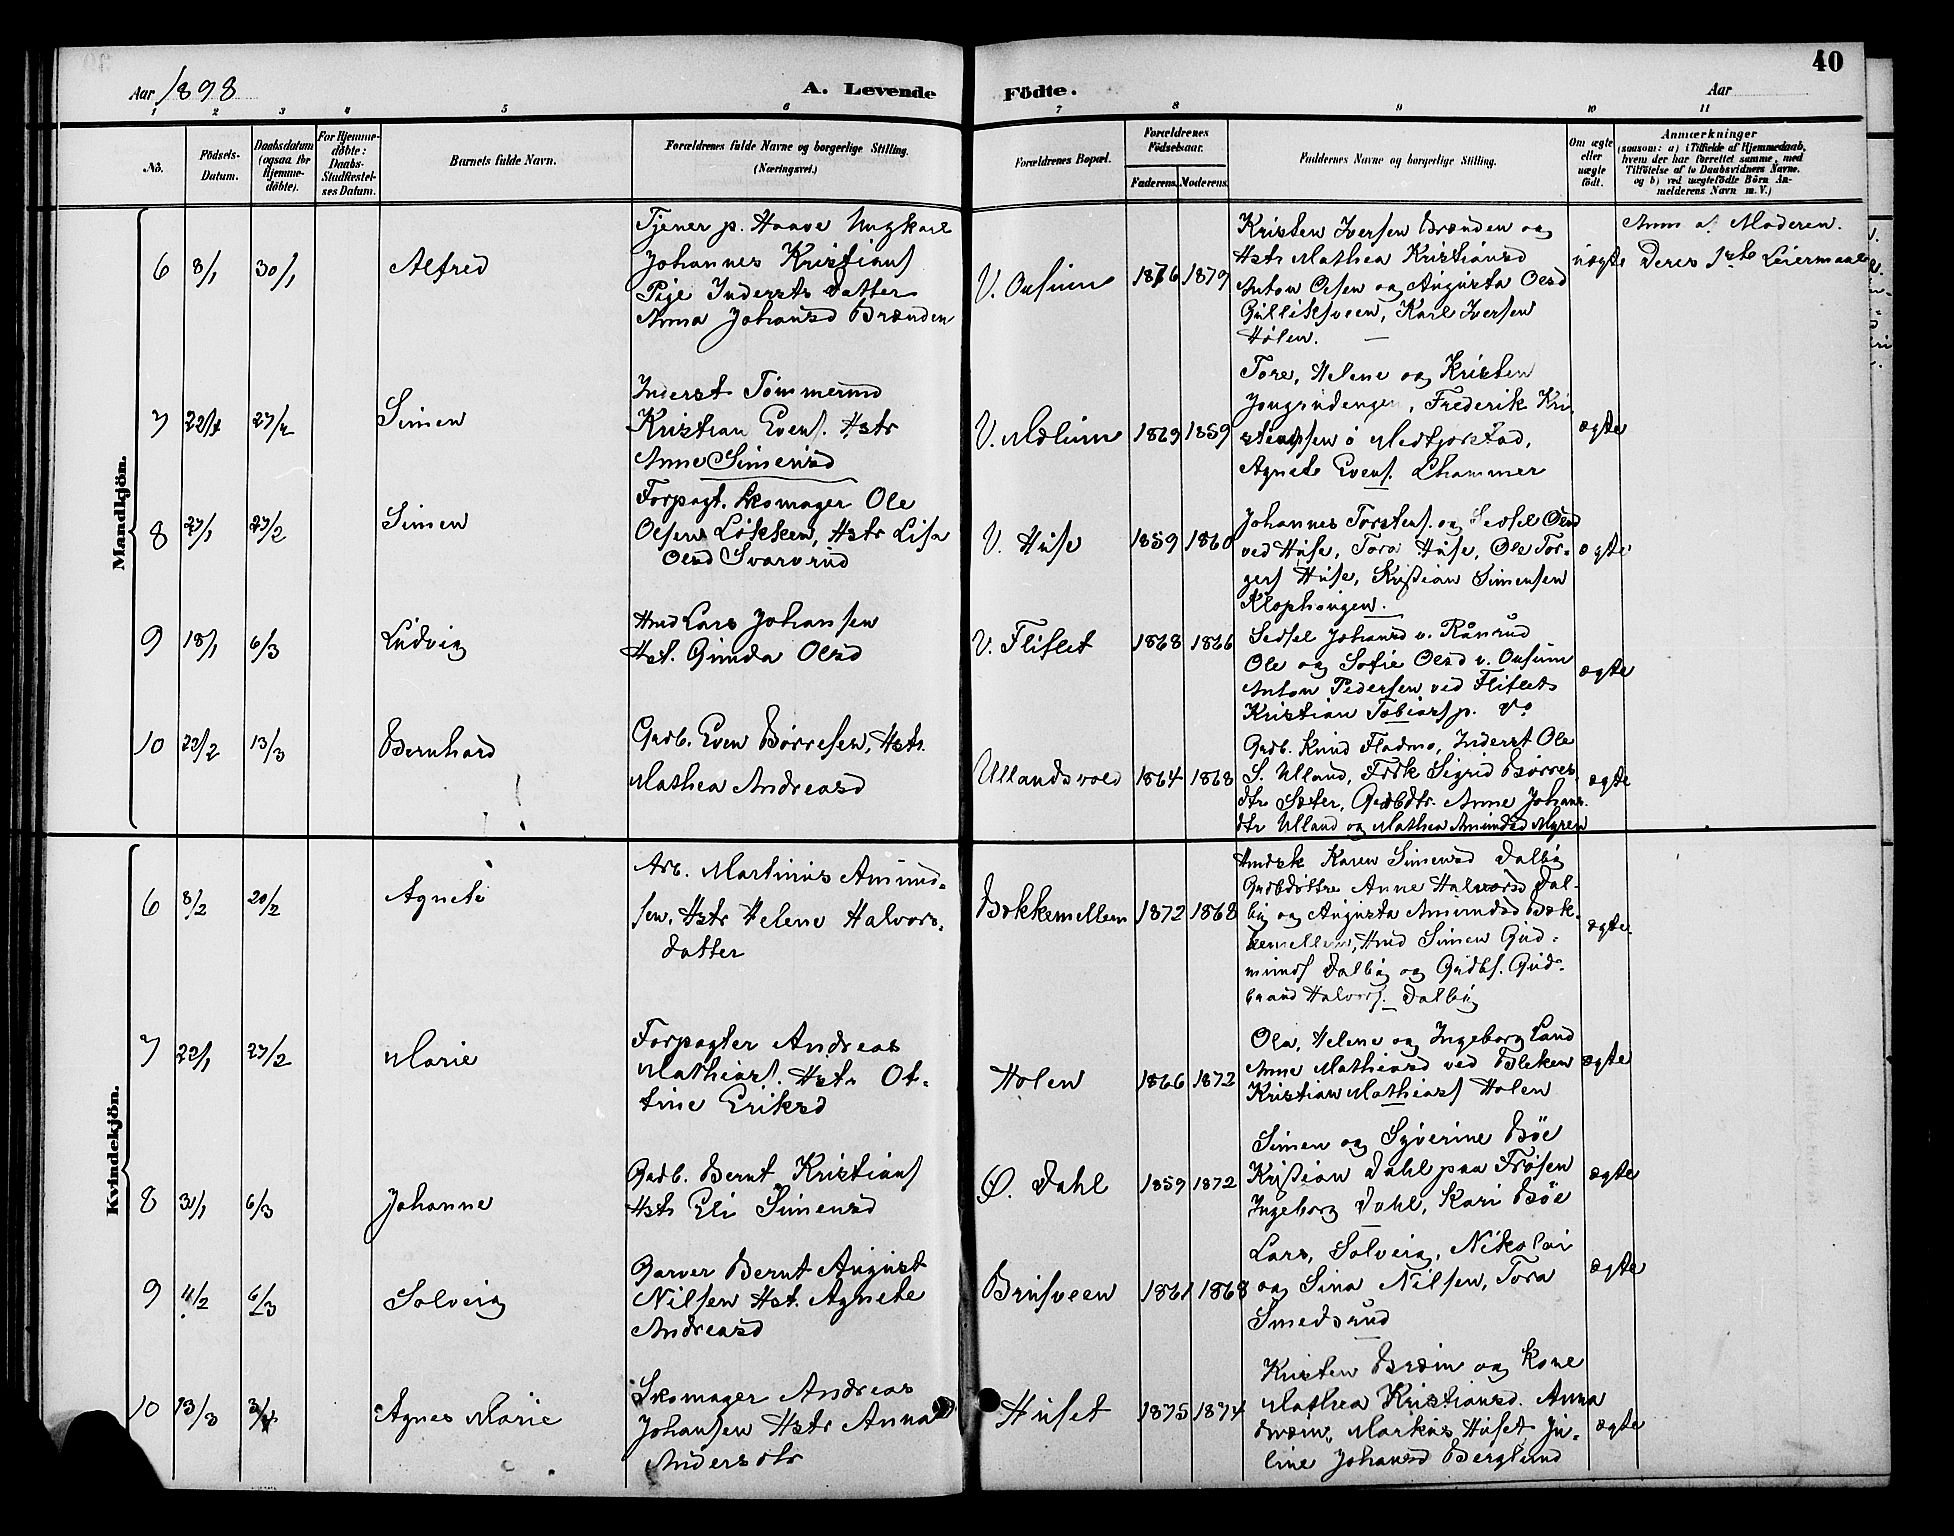 Aar 1898
A. Levende
Födte.
Aar
40
1 2 3 4 5 6 7 8 9 10 11
No.
Födsels-
Datum.
Daabsdatum
(ogsaa for
Hjemme-
döbte).
For Hjemme-
döbte:
Daabs-
Stadfæstel-
ses Datum.
Barnets fulde Navn.
Forældrenes fulde Navne og borgerlige Stilling.
(Næringsvei.)
Forældrenes Bopæl.
Forældrenes
Födselsaar.
Faderens. Moderens.
Faddernes Navne og borgerlige Stilling.
Om ægte
eller
uægte
födt.
Anmærkninger
(saasom: a) i Tilfælde af Hjemmedaab,
hvem der har forrettet samme, med
Tilföielse af to Daabsvidners Navne.
og b) ved uægtefödte Börn An-
melderens Navn m. V.)
Mandkjön.
6 8/1 30/1 Alfred
Tjener p. Haave Ungkarl
Johannes Kristians
Pige Indersts Datter
Anna Johansd Brænden
V. Ousum 1876 1879
Kristen Iversen Brænden og
Hstr Mathea Kristiansd
Anton Olsen og Augusta Olsd
Gulliksveen, Karl Iversen
Holen.
uægte
Anm af Moderen.
Deres 1ste Leiermaal
7 22/1 27/2 Simen
Inderst Tömmermd
Kristian Evens. Hstr
Anne Simensd
V. Mælum 1869 1859
Tore, Helene og Kristen
Frederik Kri
Agnete Evens. Lhammer
ægte
8 27/1 27/2 Simen
Forpagt. Skomager Ole
Olsen Løkken, Hstr Lisa
Olsd Svarvrud
V. Huse 1859 1860
Johannes Torstens. og Sedsel Olsd
ved Huse, Tora Huse, Ole Tor-
gers Huse, Kristian Simensen
Klophaugen.
ægte
9 18/1 6/3 Ludvig
Hmd Lars Johansen
Hst. Gunda Olsd
V. Fliflet 1868 1866
Sedsel Johansd v. Rånrud
Ole og Sofie Olsd v. Ousum
Anton Pedersen ved Fliflet
Kristian Tobiass p. do
ægte
10 22/2 13/3 Bernhard
Grdb. Even Børresen, Hstr.
Mathea Andreasd
Ullandsvold 1864 1868
Grdb. Knud Fladmo, Inderst Ole
S. Ulland, Frøk Sigrid Børres
dtr Sæter, Grdbdtr. Anne Johans
dtr Ulland og Mathea Amundsd Myren
ægte
Kvindekjön.
6 8/2 20/2 Agnete
Arb. Martinius Amund-
sen, Hstr Helene Halvors-
datter
Bækkemellem 1872 1868
Karen Simensd Dalby
Grdbdöttre Anne Halvorsd Dal-
by og Augusta Amundsd Bæk-
kemellem, Hmd Simen Gud-
munds Dalby og Grdbs. Gud-
brand Halvors. Dalby
ægte
7 22/1 27/2 Marie
Forpagter Andreas
Mathiass. Hstr Ot-
tine Eriksd
Holen 1866 1872
Ola, Helene og Ingeborg Lund
Anne Mathiasd ved Bleken
Kristian Mathiass Holen
ægte
8 31/1 6/3 Johanne
Grdb. Bernt Kristians
Hstr Eli Simensd
Ø. Dahl 1859 1872
Simen og Syverine Bøe
Kristian Dahl paa Frøsen
Ingeborg Dahl, Kari Bøe
ægte
9 4/2 6/3 Solveig
Garver Bernt August
Nilsen Hst. Agnete
Andreasd
Brusveen 1861 1868
Lars, Solveig, Nikolai
og Sina Nilsen, Tora
Smedsrud
ægte
10 13/3 Agnes Marie
Skomager Andreas
Johansen Hstr Anna
Andersdtr
Huset 1875 1874
Kristen Bræin og Kone
Mathea Kristiansd. Anna
Bræin, Markus Huset, Ju-
line Johansd Berglund
ægte